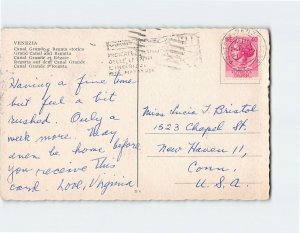 VENEZIA
Canal Grande e Regata storica
Grand Canal and Regatta
Canal Grande et Régate
Regatta auf dem Canal Grande
Canal Grande
Having a fine time
but feel a bit
rushed. Only a
week more. May
even be home before
you receive this
card. Love, Virginia
Miss Lucia T. Bristol
1523 Chapel St.
New Haven 11,
Conn.
U.S.A.